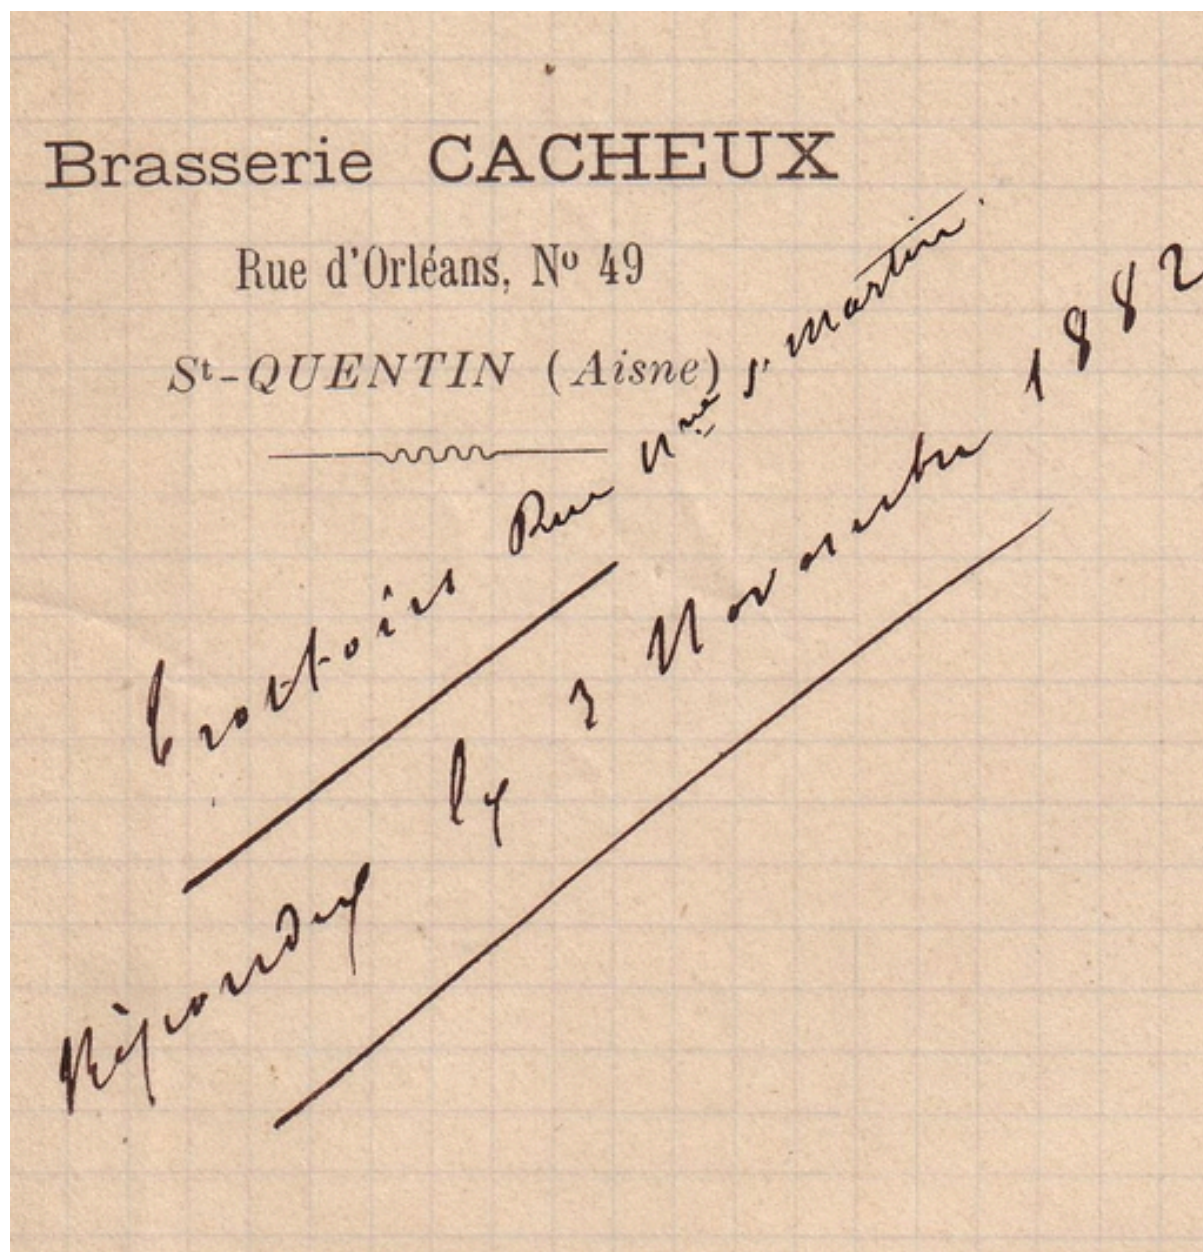 Brasserie CACHEUX
Rue d'Orléans, Nº 49
St-QUENTIN (Aisne)
Trottoirs Rue Nve St Martin
Répondu le 3 Novembre 1882